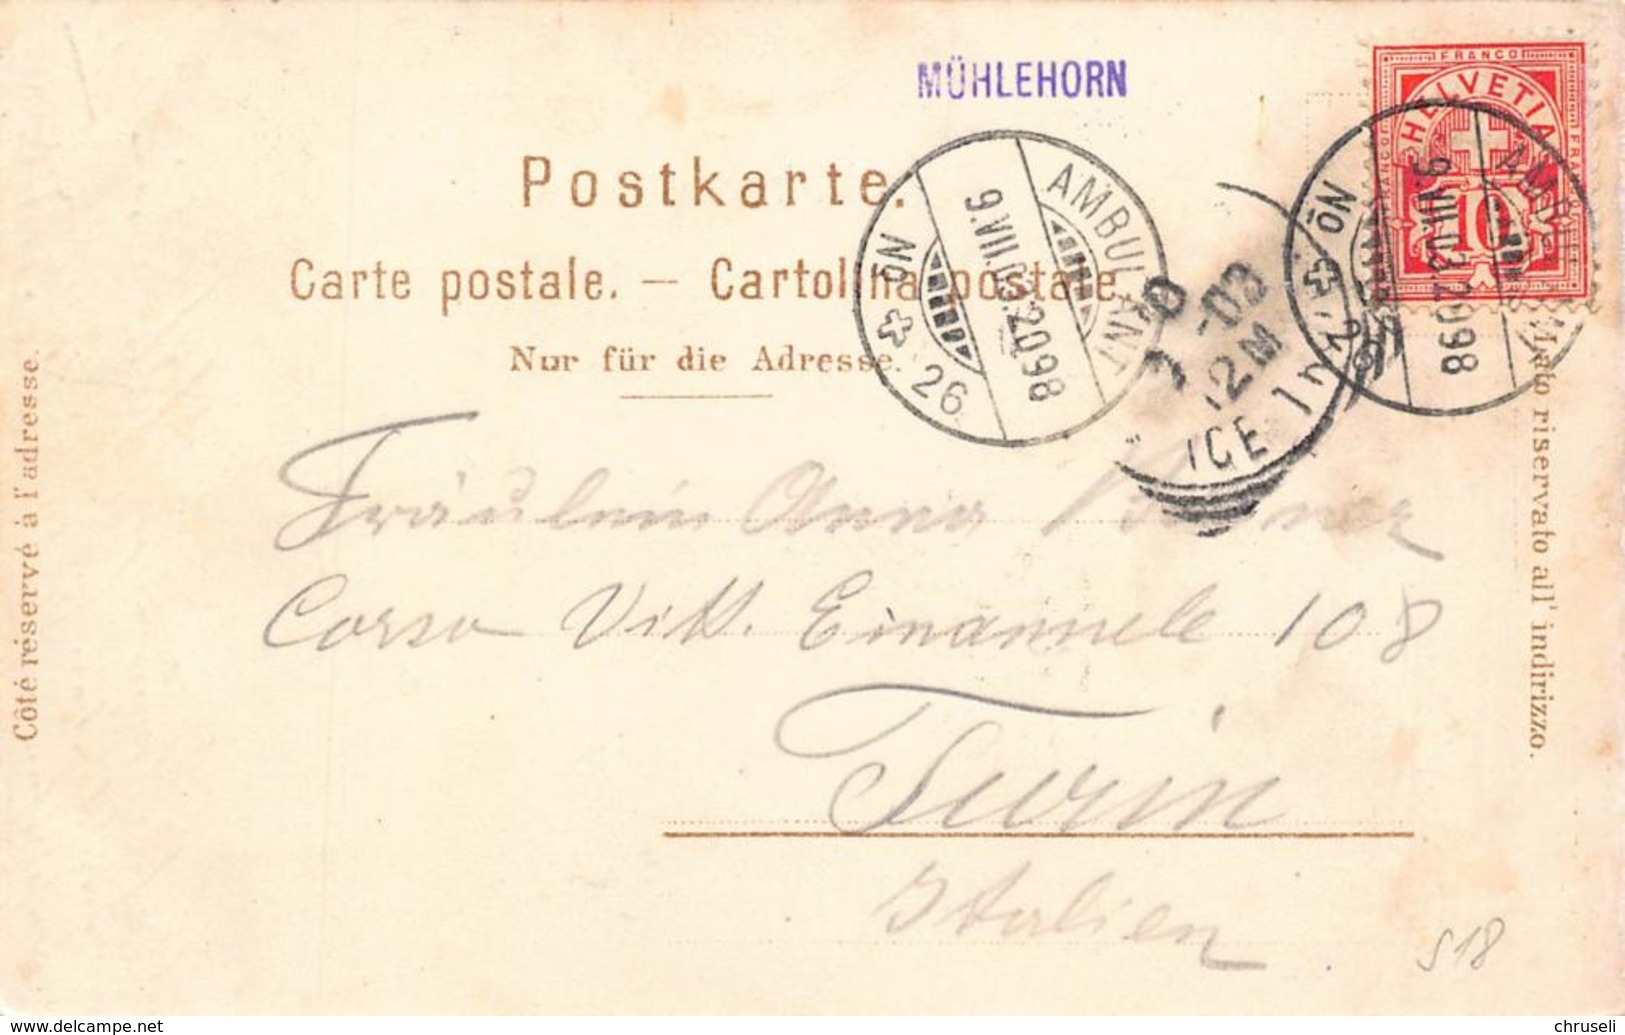 MÜHLEHORN
FRANCO
HELVETIA
10
Postkarte.
Carte postale. — Cartolina postale.
Nur für die Adresse.
AMBULANT
9.VII.03.2098
Nō 26
AMBULANT
9.VII.03.2098
Nō 26
-03
12M
Côté réservé à l'adresse.
Lato riservato all' indirizzo.
Fräulein Anna
Corso Vitt. Emanuele 108
Turin
Italien
S18
www.delcampe.net
chruseli